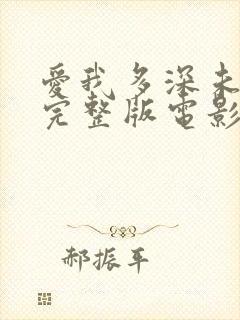 愛我多深未
完整版電影
郝振平